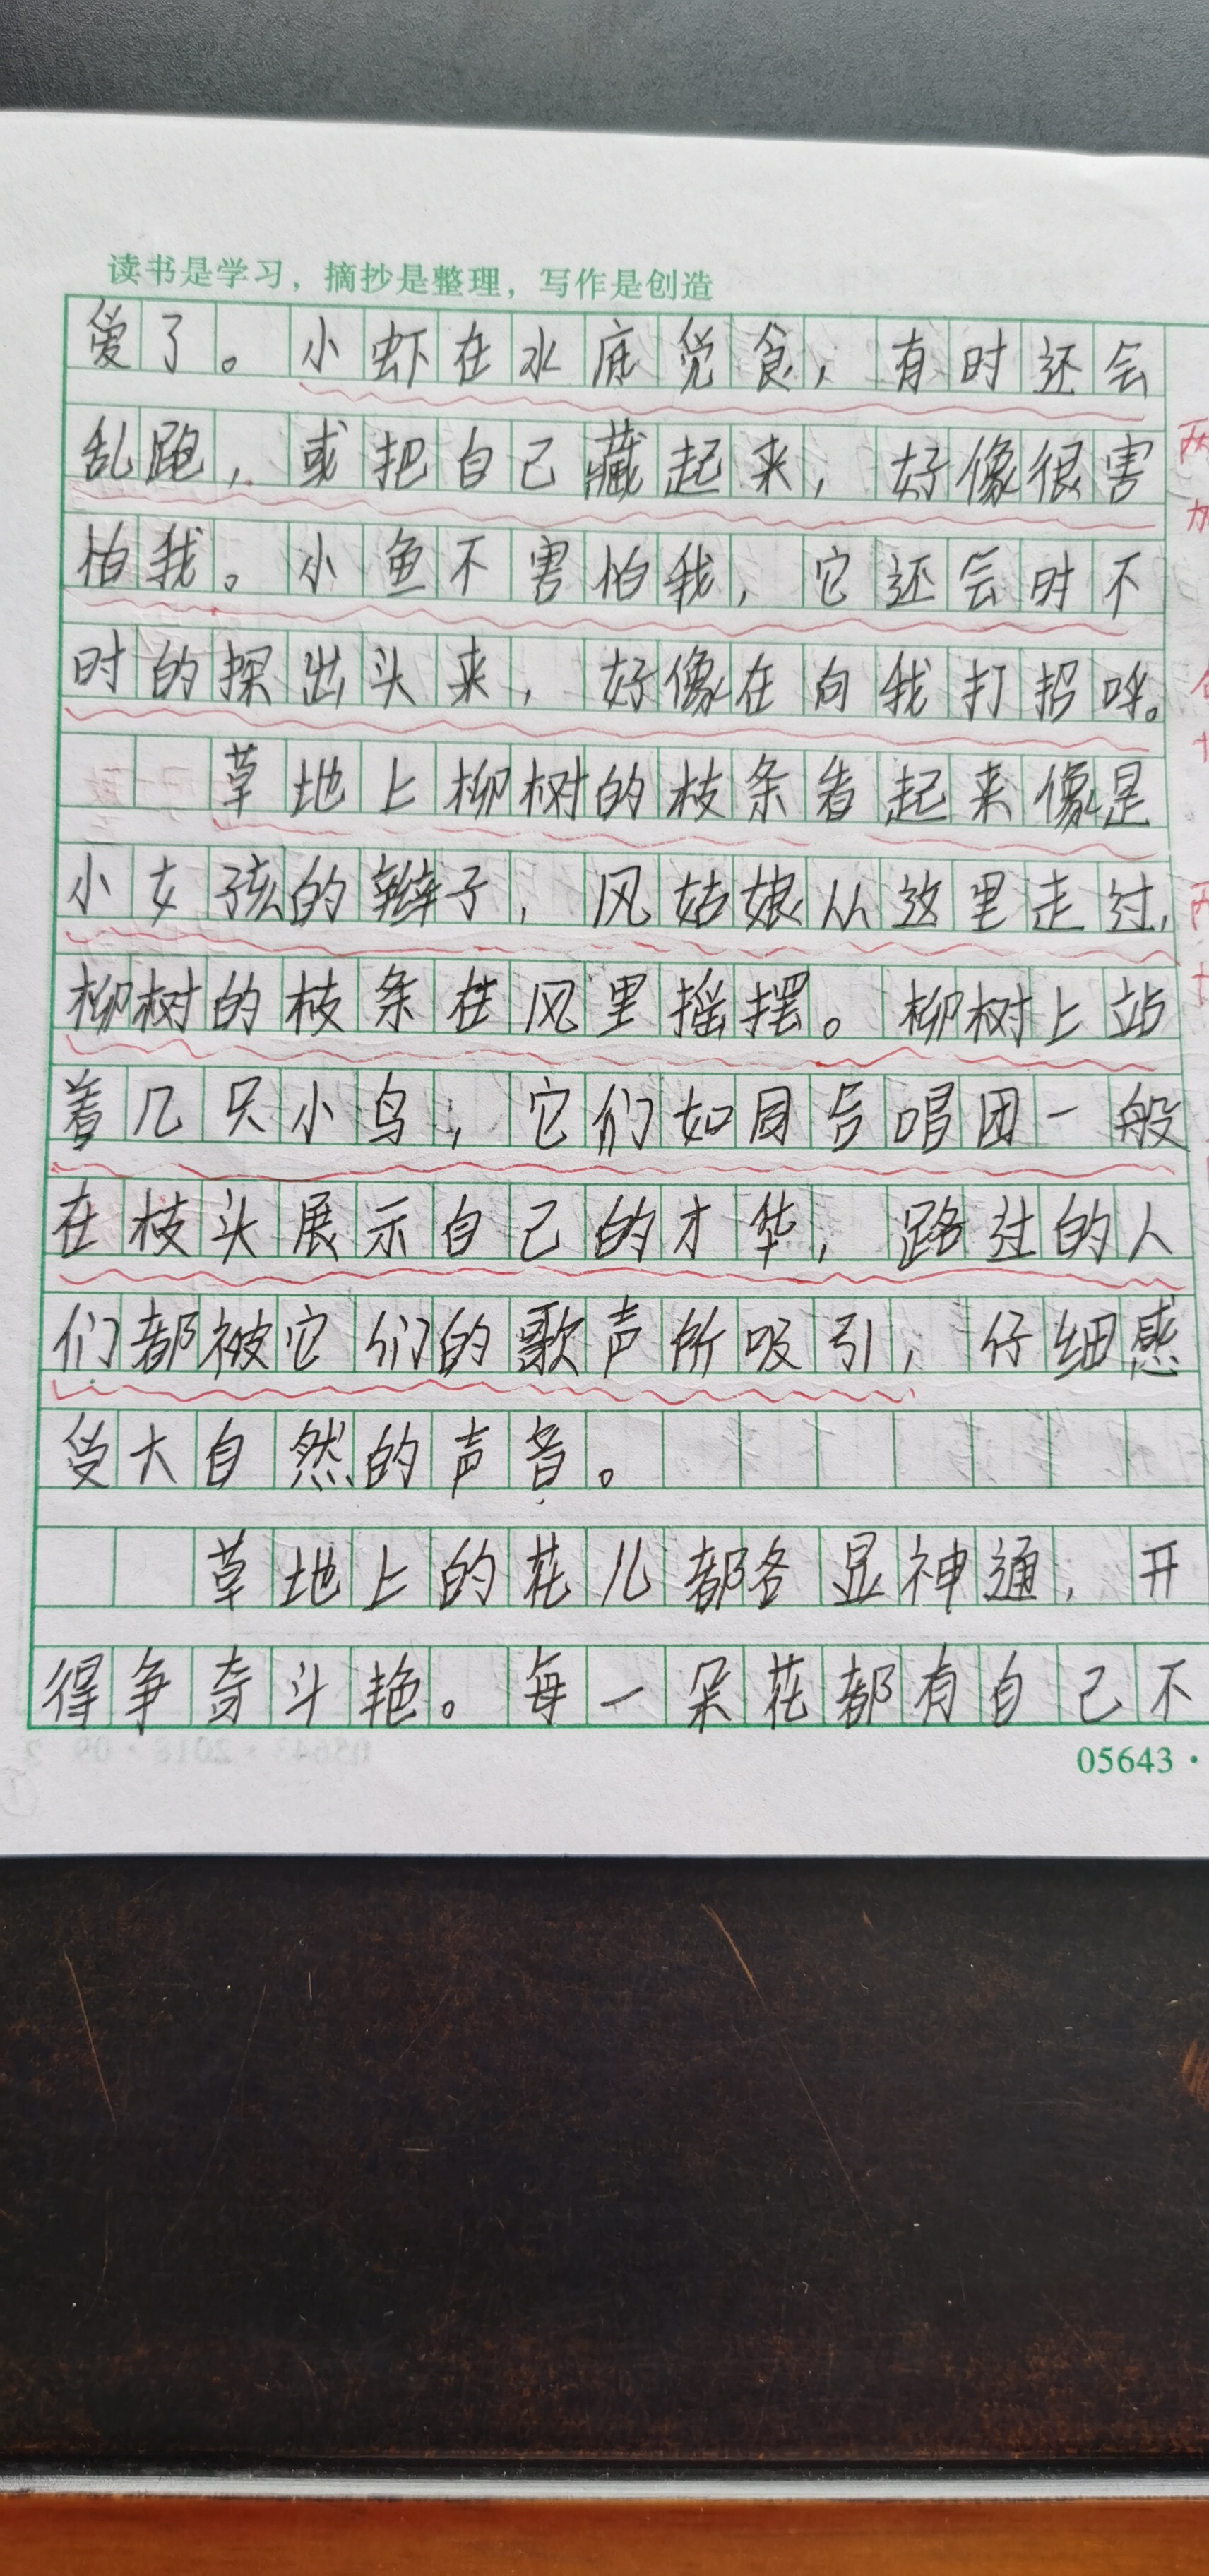 读书是学习，摘抄是整理，写作是创造
爱了。小虾在水底觉食，有时还会
乱跑，或把自己藏起来，好像很害
怕我。小鱼不害怕我，它还会时不
时的探出头来，好像在向我打招呼。
草地上柳树的枝条看起来像是
小女孩的辫子，风姑娘从这里走过，
柳树的枝条在风里摇摆。柳树上站
着几只小鸟，它们如同合唱团一般
在枝头展示自己的才华，路过的人
们都被它们的歌声所吸引，仔细感
受大自然的声音。
草地上的花儿都各显神通，开
得争奇斗艳。每一朵花都有自己不
05643·